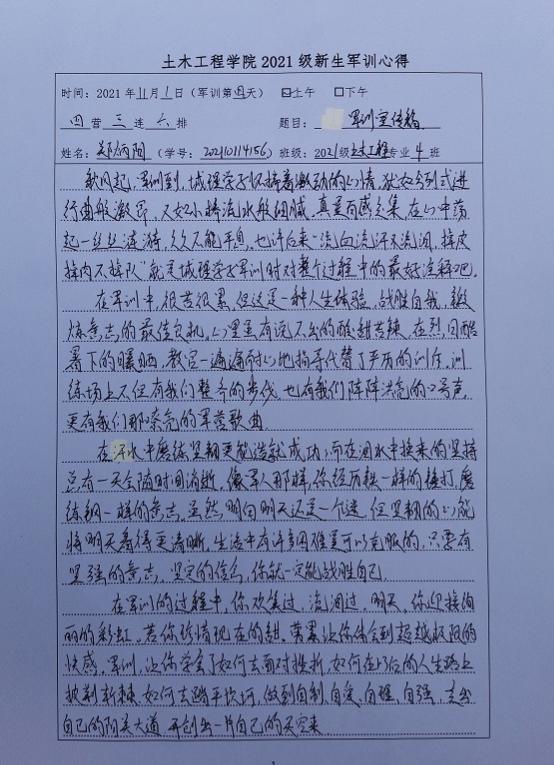 土木工程学院 2021 级新生军训心得
时间：2021 年 11 月 1 日（军训第四天） ☑上午 □下午
四 营 三 连 六 排 题目： 军训宣传稿
姓名：郑炳阳 （学号：202101114156）班级：2021级土木工程专业 4 班
秋风起，军训到，城理学子怀揣着激动的心情，犹如分列式进
行曲般激昂，又如小桥流水般细腻，真是百感交集，在心中荡
起一丝丝涟漪，久久不能平息。也许后来“流血流汗不流泪，掉皮
掉肉不掉队”就是城理学子军训时对整个过程中的最好注释吧。
在军训中，很苦很累，但这是一种人生体验，战胜自我，锻
炼意志的最佳良机。心里虽有说不出的酸甜苦辣，在烈日酷
暑下的曝晒，教官一遍遍耐心地指导代替了平历的训斥，训
练场上不但有我们整齐的步伐，也有我们阵阵洪亮的口号声，
更有我们那嘹亮的军营歌曲。
在汗水中磨练坚韧更能造就成功，而在泪水中挨来的坚持
总有一天会随时间消逝。像军人那样，你经历铁一样的锤打，磨
练钢一样的意志。虽然，明白明天还是一个谜，但坚韧的心能
将明天看得更清晰，生活中有许多困难是可以克服的，只要有
坚强的意志，坚定的信念，你就一定能战胜自己。
在军训的过程中，你欢笑过，流泪过，明天，你迎接绚
丽的彩虹。若你珍惜现在的甜，苦累让你体会到超越极限的
快感。军训，让你学会了如何去面对挫折，如何在以后的人生路上
披荆斩棘，如何去踏平坎坷，做到自制，自爱，自理，自强，走出
自己的阳关大道，开创出一片自己的天空来。